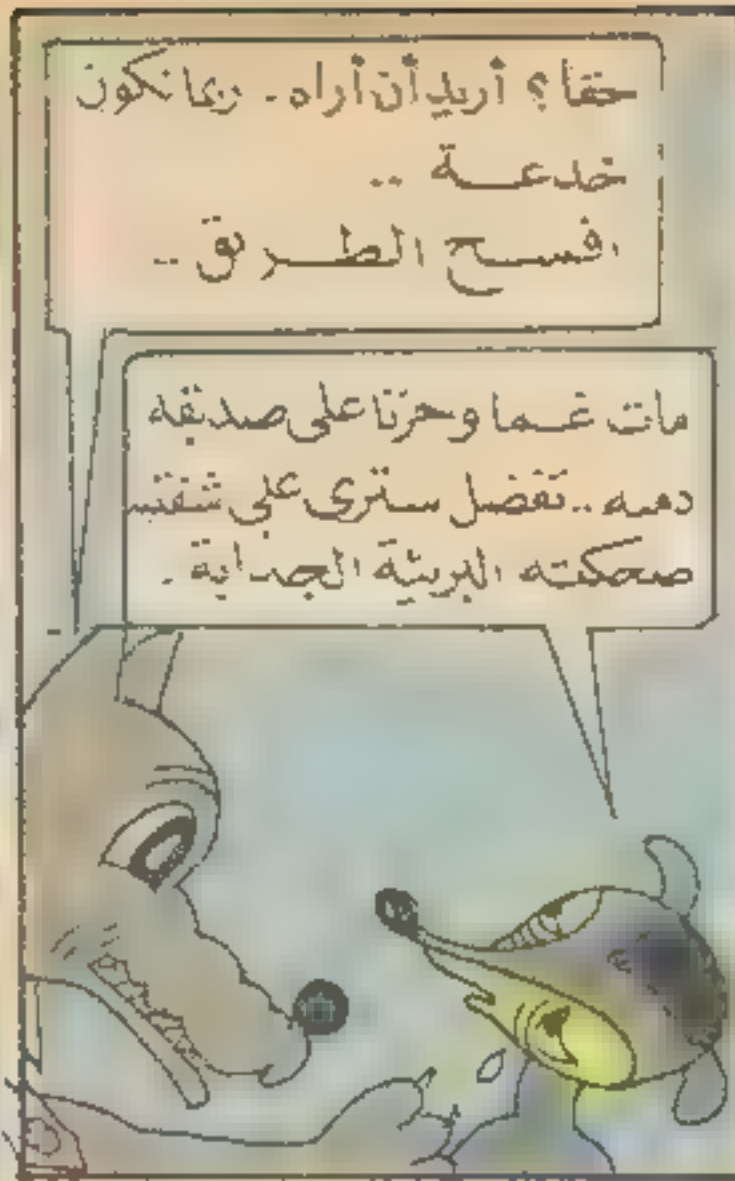 حقا؟ أريد أن أراه. ربما تكون
خدعة ..
افسح الطريق ..
مات غما وحزنا على صديقه
دمه .. تفضل سترى على شفتيه
ضحكته البريئة الجذابة .